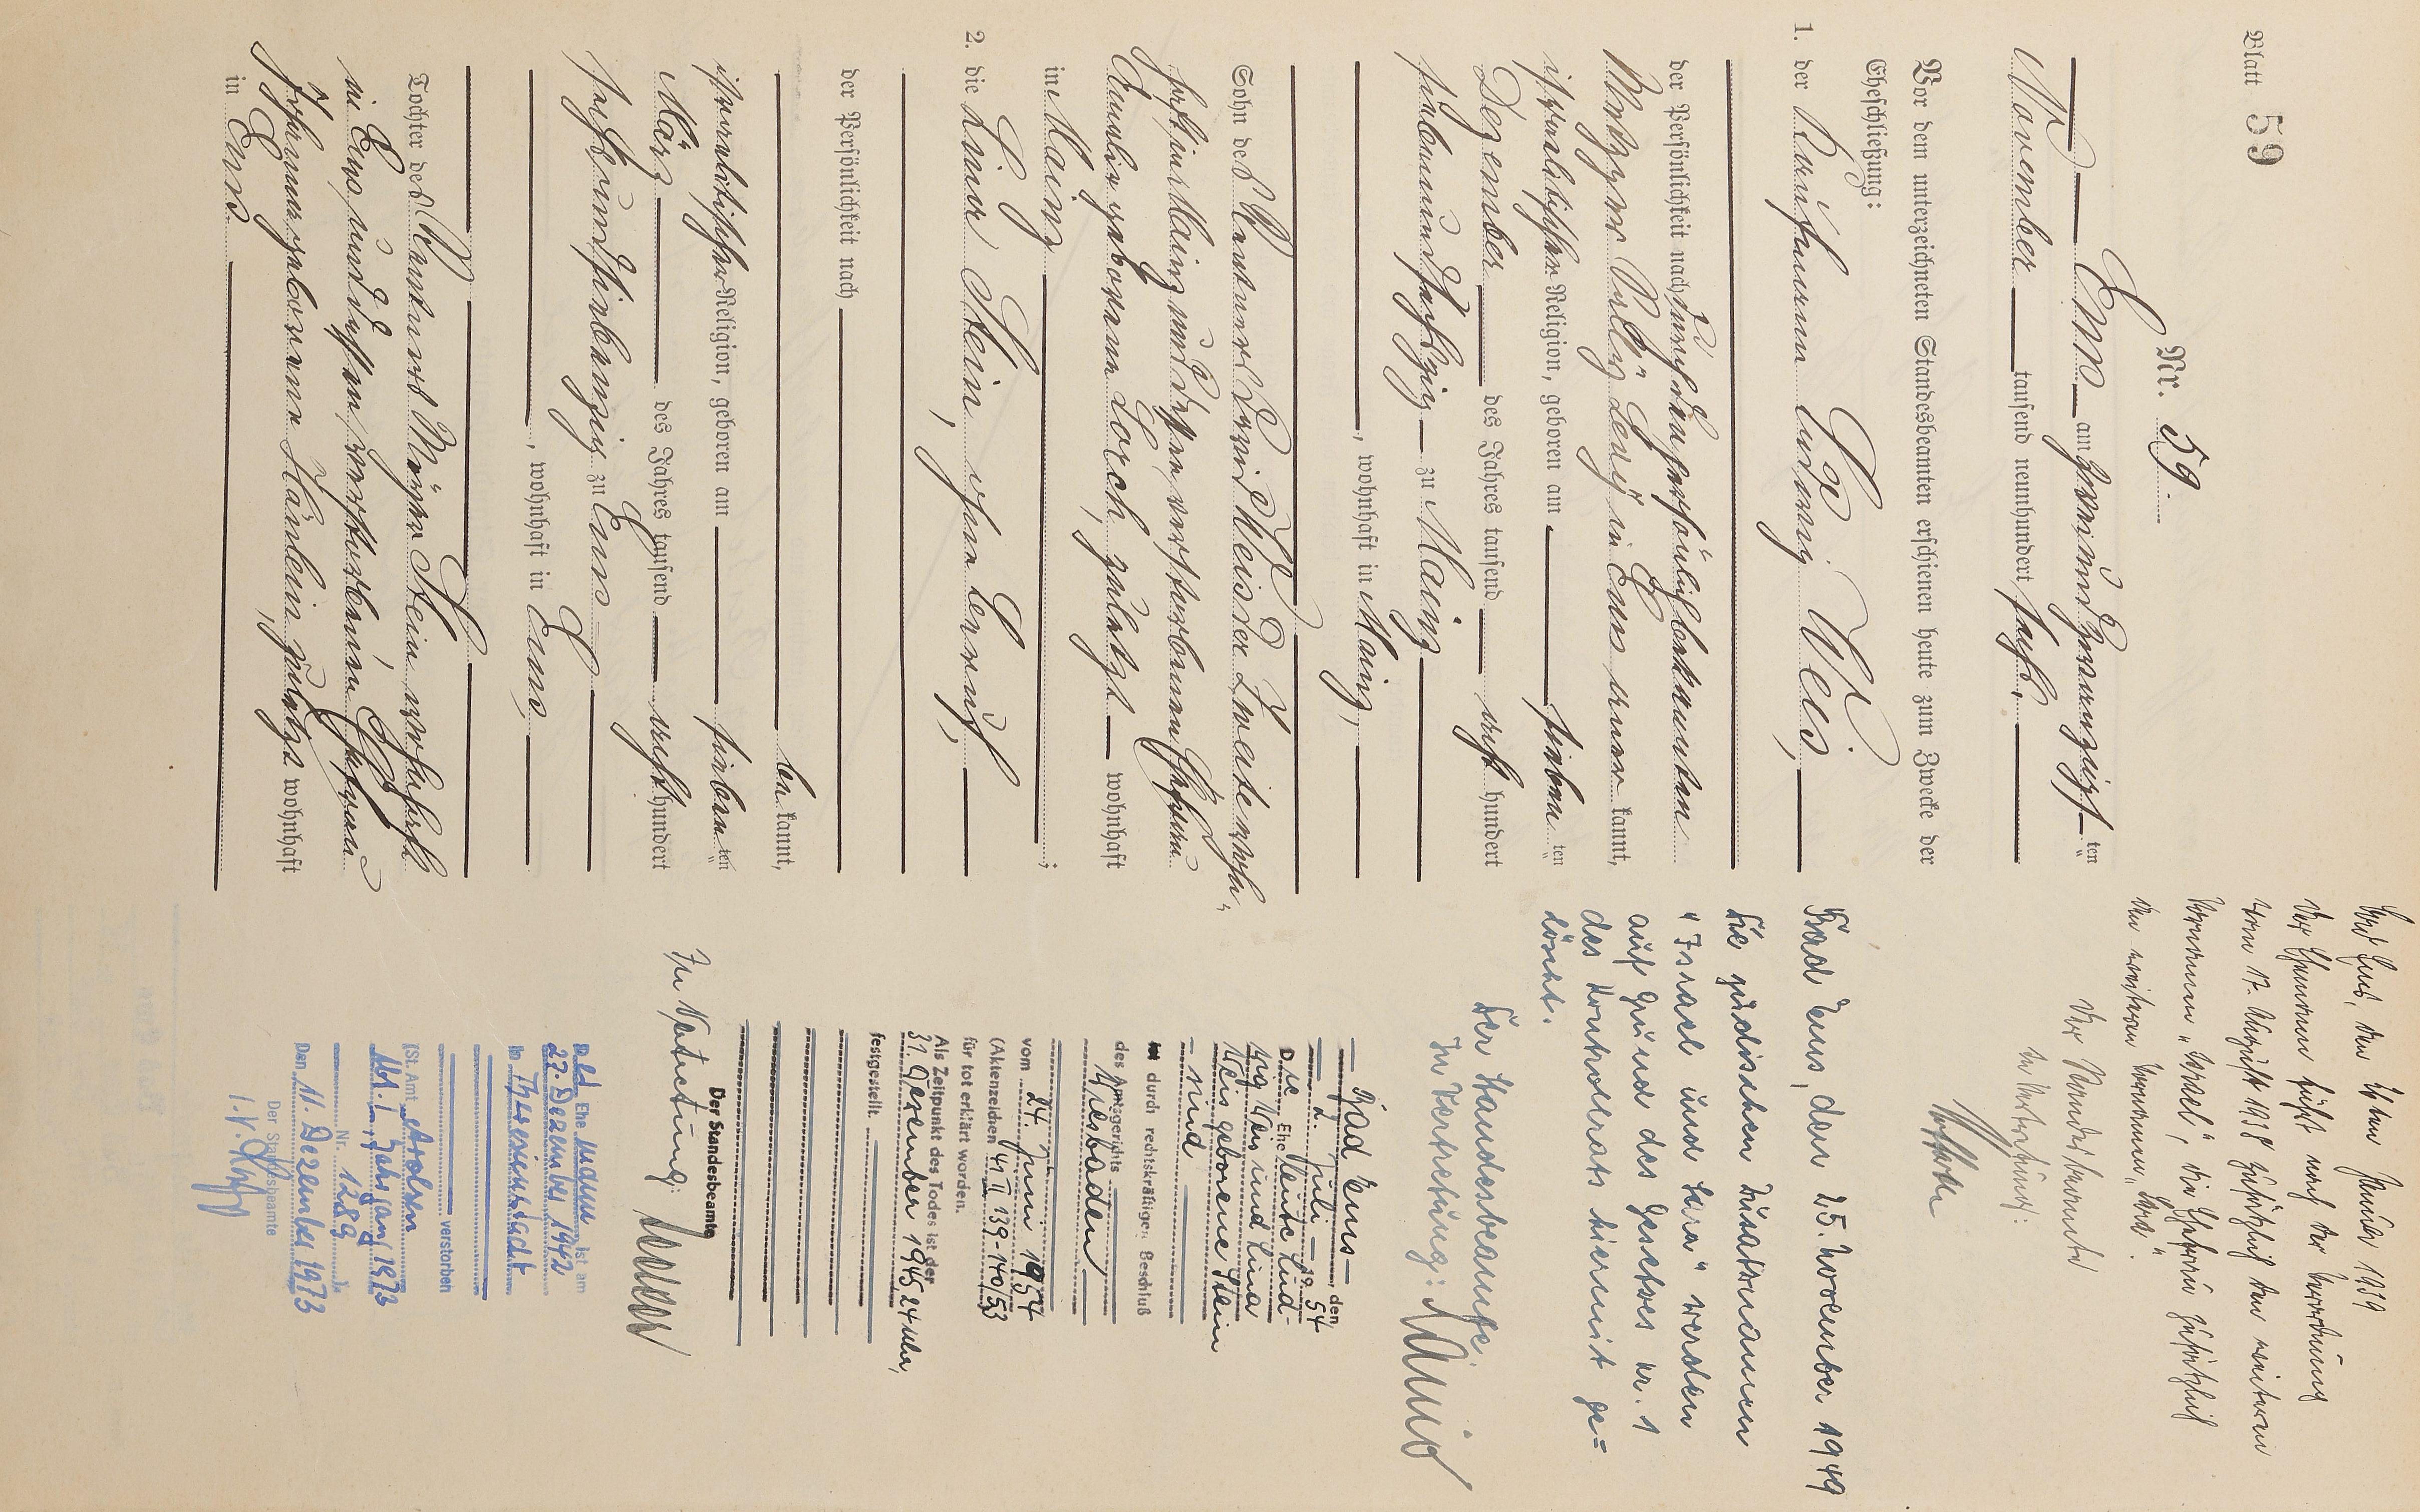 Blatt 59
Nr. 59.
Ems am zweiundzwanzigsten
November tausend neunhundert sechs.
Vor dem unterzeichneten Standesbeamten erschienen heute zum Zwecke der
Eheschließung:
1. der Kaufmann Ludwig Weis,
der Persönlichkeit nach durch den persönlich bekannten
Metzger Feltz Levy in Ems anerkannt,
israelitischer Religion, geboren am siebenten
Dezember des Jahres tausend achthundert
siebenundsechzig zu Mainz
, wohnhaft in Mainz,
Sohn des Rentners Weis der Zweite wohn-
haft in Mainz und dessen verstorbenen Ehefrau
geborenen Lorch, zuletzt wohnhaft
in Mainz;
2. die Lina Stein, ohne Beruf,
der Persönlichkeit nach
bekannt,
israelitischer Religion, geboren am siebenten
März des Jahres tausend achthundert
sechsundsiebenzig zu Ems
, wohnhaft in Ems,
Tochter des Stein wohnhaft
in Ems und dessen verstorbenen Ehefrau
Johanna geborene Härlein, zuletzt wohnhaft
in Ems
Bad Ems, den Januar 1939
Der Ehemann führt nach der Verordnung
vom 17. August 1938 zusätzlich den weiteren
Vornamen „Israel", die Ehefrau zusätzlich
den weiteren Vornamen „Sara".
Der Standesbeamte
In Vertretung:
Bad Ems, den 25. November 1949
Die jüdischen Zusatznamen
"Israel und Sara" werden
auf Grund des Gesetzes Nr. 1
des Kontrollrats hiermit ge=
löscht.
Der Standesbeamte,
In Vertretung:
Bad Ems, den
2. Juli 1954
Die Eheleute Lud-
wig Weis und Lina
Weis geborene Stein
sind
durch rechtskräftigen Beschluß
des Amtsgerichts
Wiesbaden
vom 24. Juni 1954
(Aktenzeichen 41 II 139-140/53
für tot erklärt worden.
Als Zeitpunkt des Todes ist der
31. Dezember 1945 24 Uhr,
festgestellt.
Der Standesbeamte
In Vertretung:
Ehemann ist am
22. Dezember 1942
in Theresienstadt
verstorben
(St. Amt Arolsen
Abt. I, Jahrgang 1973
Nr. 1289)
Den 11. Dezember 1973
Der Standesbeamte
I.V.